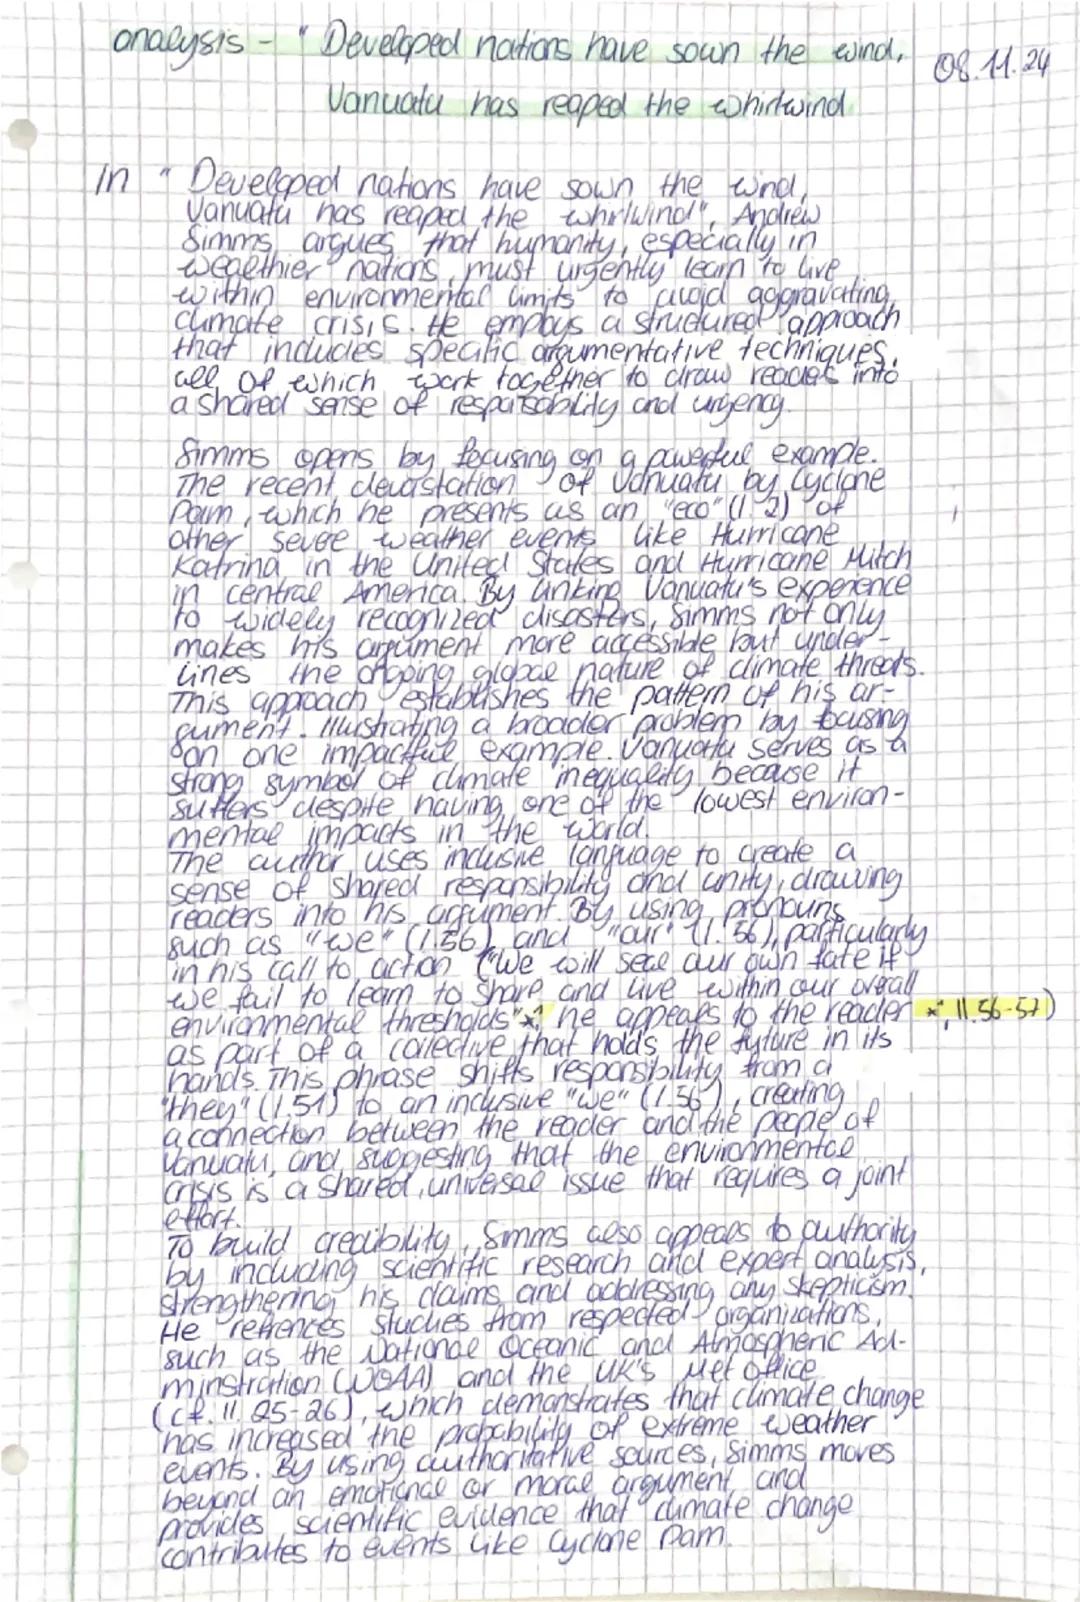 analysis - "Developed nations have sown the wind,
08.11.24
Vanuatu has reaped the whirlwind
In "Developed nations have sown the wind,
Vanuatu has reaped the whirlwind", Andrew
Simms argues that humanity, especially in
wealthier nations, must urgently learn to live
within environmental limits to avoid aggravating
climate crisis. He employs a structured approach
that includes specific argumentative techniques,
all of which work together to draw readers into
a shared sense of responsability and urgency.
Simms opens by focusing on a powerful example.
The recent devastation of Vanuatu by Cyclone
Pam, which he presents as an "eco" (l. 2) of
other severe weather events like Hurricane
Katrina in the United States and Hurricane Mitch
in central America. By linking Vanuatu's experience
to widely recognized disasters, Simms not only
makes his argument more accessible but under-
lines the ongoing global nature of climate threats.
This approach establishes the pattern of his ar-
gument. Illustrating a broader problem by focusing
on one impactful example. Vanuatu serves as a
strong symbol of climate inequality because it
suffers despite having one of the lowest environ-
mental impacts in the world.
The author uses inclusive language to create a
sense of shared responsibility and unity, drawing
readers into his argument. By using pronouns
such as "we" (l.56) and "our" (l. 56), particularly
in his call to action ("We will seal our own fate if
we fail to learn to share and live within our overall
environmental thresholds"*, he appeals to the reader *, ll. 56-57)
as part of a collective that holds the future in its
hands. This phrase shifts responsibility from a
"they" (l.51) to an inclusive "we" (l.56), creating
a connection between the reader and the people of
Vanuatu, and suggesting that the environmental
crisis is a shared, universal issue that requires a joint
effort.
To build credibility, Simms also appeals to authority
by including scientific research and expert analysis,
strengthering his claims and addressing any skepticism.
He refrences studies from respected organizations,
such as the National Oceanic and Atmospheric Ad-
minstration (NOAA) and the UK's Met Office
(cf. ll. 25-26), which demonstrates that climate change
has increased the probability of extreme weather
events. By using authoritative sources, Simms moves
beyond an emotional or moral argument and
provides scientific evidence that climate change
contributes to events like Cyclone Pam.